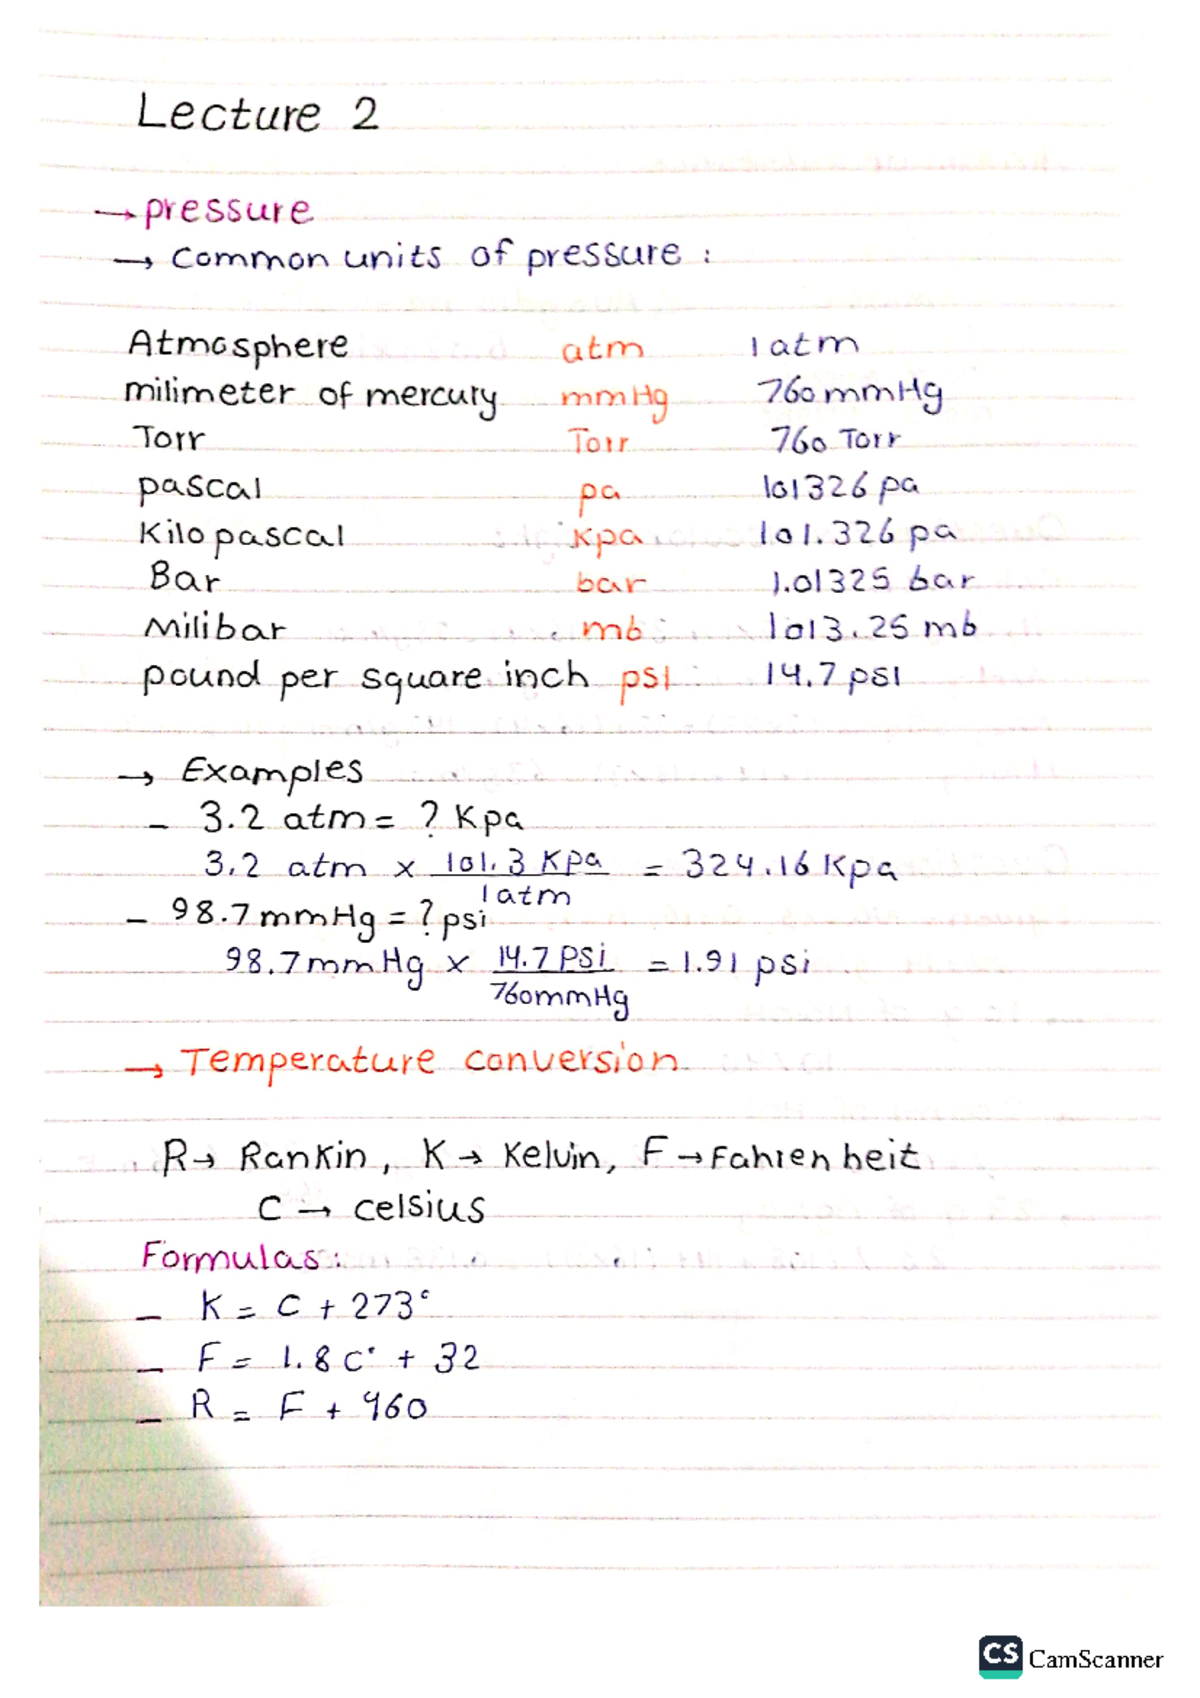 Lecture 2
→ pressure
→ Common units of pressure :
Atmosphere atm 1 atm
milimeter of mercury mmHg 760 mmHg
Torr Torr 760 Torr
pascal pa 101326 pa
Kilo pascal Kpa 101.326 pa
Bar bar 1.01325 bar
Milibar mb 1013.25 mb
pound per square inch psi 14.7 psi
→ Examples
- 3.2 atm = ? Kpa
3.2 atm x 101.3 Kpa / 1 atm = 324.16 Kpa
- 98.7 mmHg = ? psi
98.7 mmHg x 14.7 PSi / 760mmHg = 1.91 psi
→ Temperature conversion
R → Rankin, K → Kelvin, F → Fahrenheit
C → celsius
Formulas :
- K = C + 273°
- F = 1.8 C° + 32
- R = F + 460
CS CamScanner